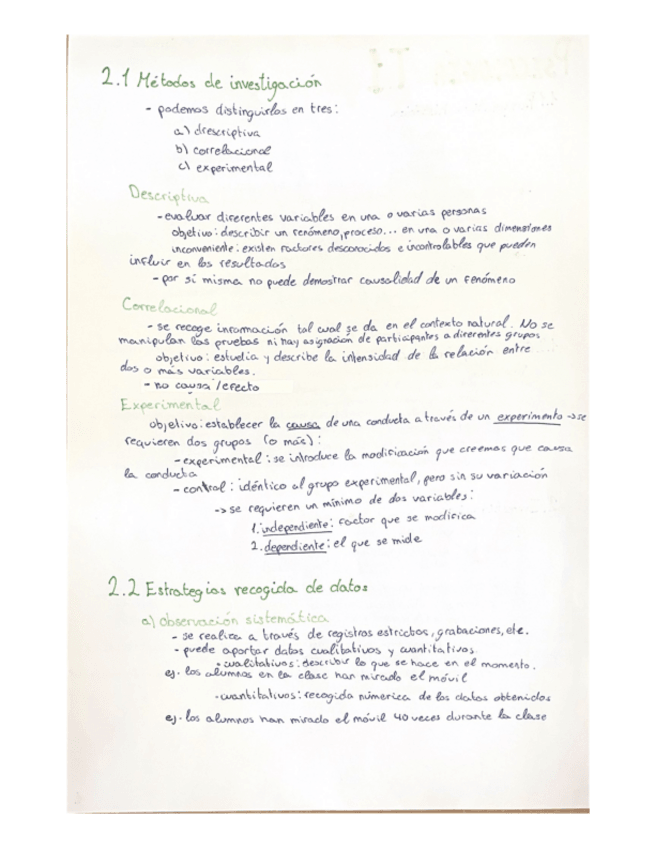 2.1 Métodos de investigación
- podemos distinguirlos en tres:
a) drescriptiva
b) correlacional
c) experimental
Descriptiva
- evaluar direrentes variables en una o varias personas
objetivo: describir un fenómeno, proceso... en una o varias dimensiones
inconveniente: existen factores desconocidos e incontrolables que pueden
influir en los resultados
- por sí misma no puede demostrar causalidad de un fenómeno
Correlacional
- se recoge información tal cual se da en el contexto natural. No se
manipulan las pruebas ni hay asignación de participantes a diferentes grupos
objetivo: estudia y describe la intensidad de la relación entre
dos o más variables.
- no causa/efecto
Experimental
objetivo: establecer la causa de una conducta a través de un experimento → se
requieren dos grupos (o más):
- experimental: se introduce la modificación que creemos que causa
la conducta
- control: idéntico al grupo experimental, pero sin su variación
-> se requieren un mínimo de dos variables:
1. independiente: factor que se modifica
2. dependiente: el que se mide
2.2 Estrategias recogida de datos
a) observación sistemática
- se realiza a través de registros estrictos, grabaciones, etc.
- puede aportar datos cualitativos y cuantitativos
• cualitativos: describir lo que se hace en el momento.
ej. los alumnos en la clase han mirado el móvil
• cuantitativos: recogida númerica de los datos obtenidos
ej. los alumnos han mirado el móvil 40 veces durante la clase